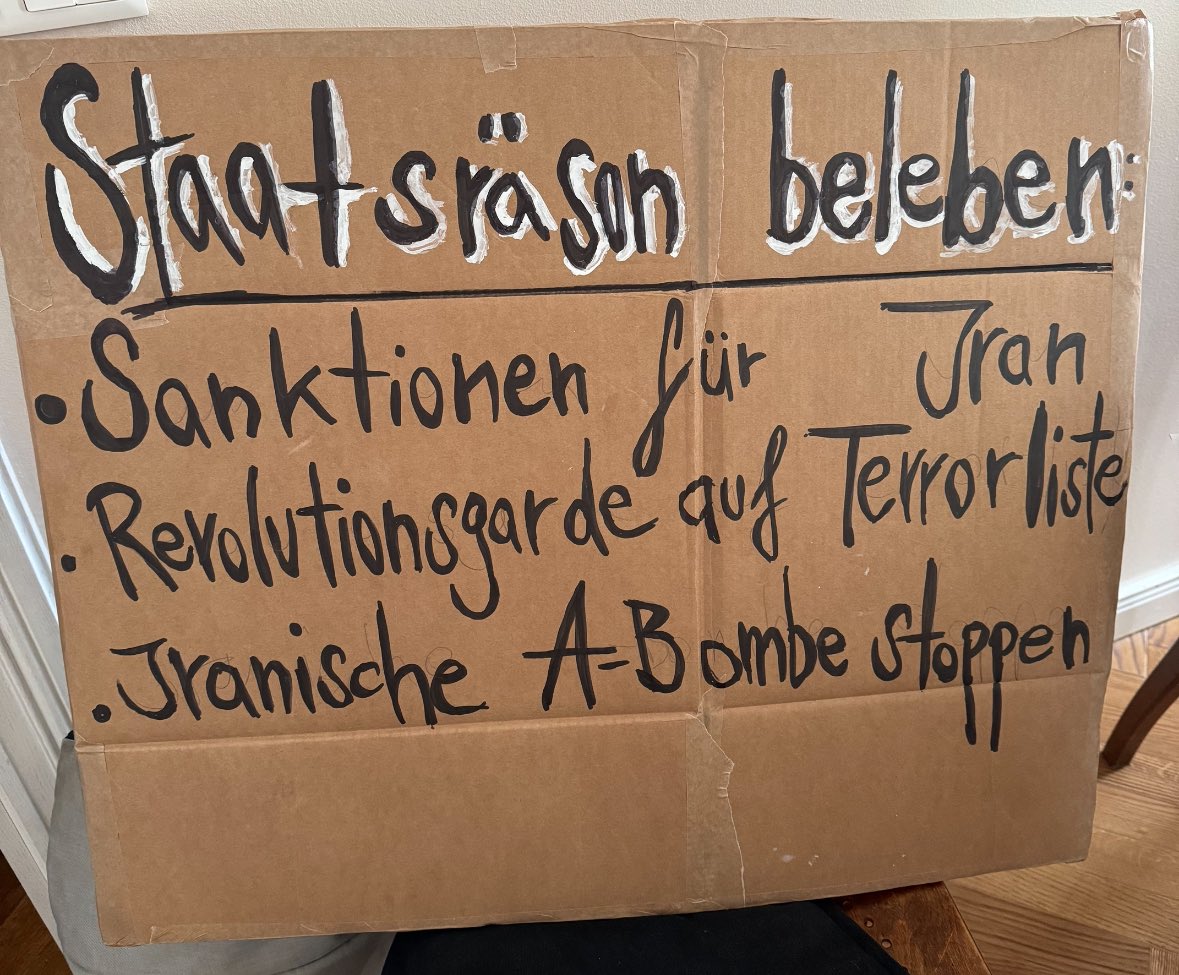 Staatsräson beleben:
• Sanktionen für Iran
• Revolutionsgarde auf Terrorliste
• Iranische A-Bombe stoppen